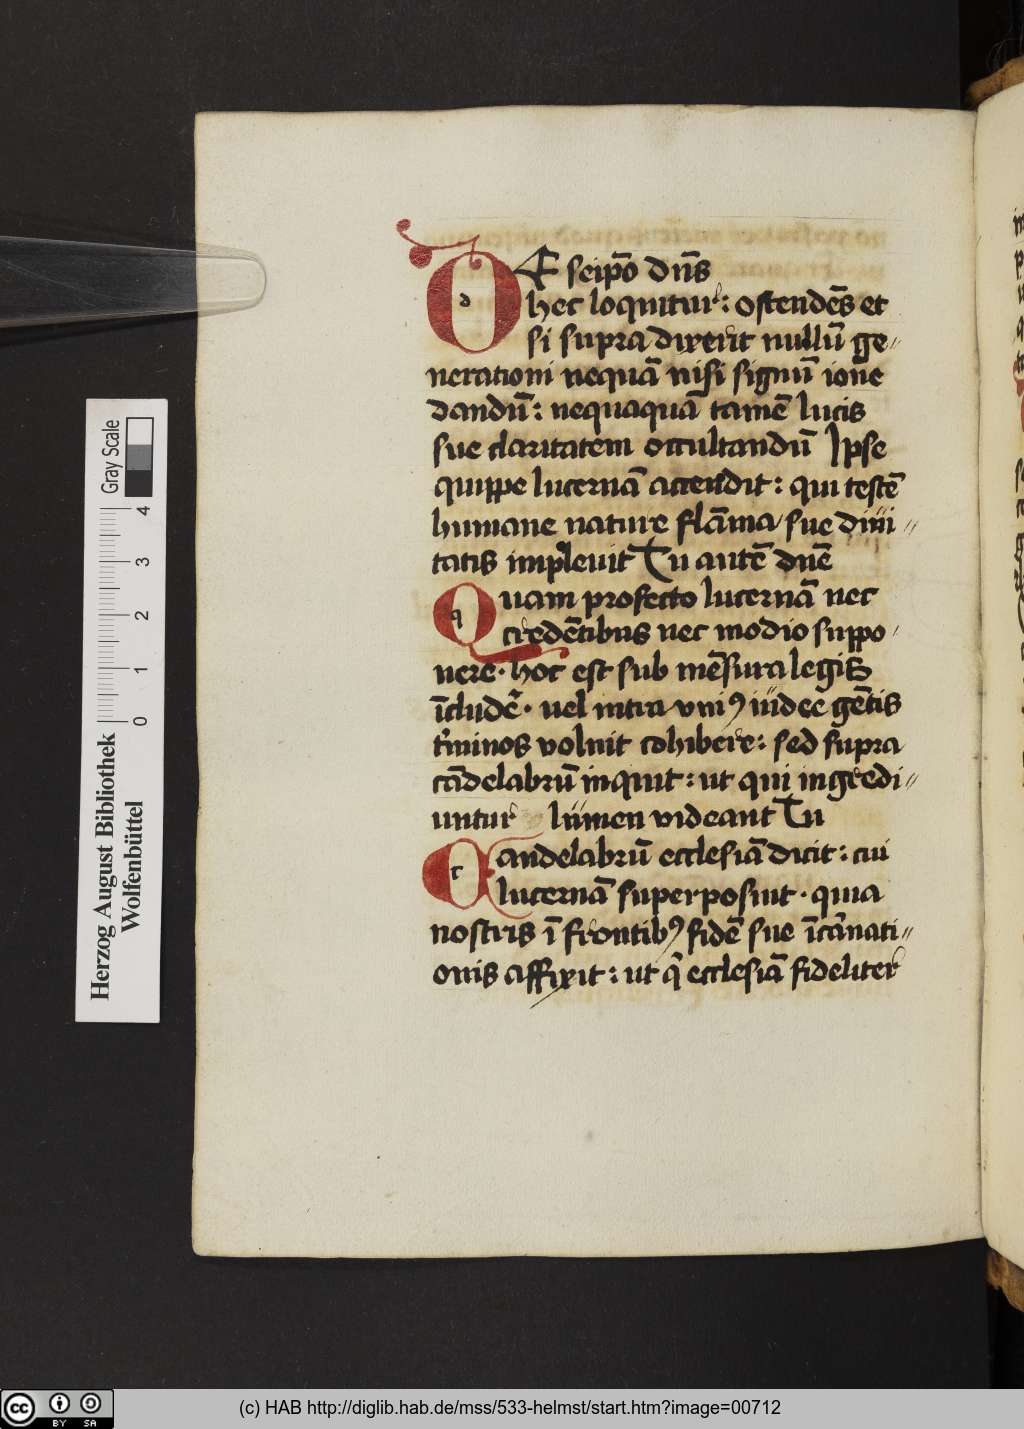 DE seip̄o dn̄s
hec loquitur : ostendēs et
si supra dixerit nullū ge-
nerationi nequā nisi signū ione
dandū : nequaquā tamē lucis
sue claritatem occultandū Ipse
quippe lucernā accendit : qui testē
humane nature flāma sue diui
tatis impleuit Tu autē dn̄e
Quam profecto lucernā nec
credētibus nec modio suppo
nere · hoc est sub mēsura legis
īcludē · uel intra vniꝰ iudee gētis
t̄minos voluit cohibere : sed supra
cādelabrū inquit : ut qui ingredi
untur lumen videant Tu
Candelabrū ecclesiā dicit : cui
lucernā superposuit · quia
nostris ī frontibꝰ fidē sue īcarnati
onis affixit : ut q̄ ecclesiā fideliter
Herzog August Bibliothek
Wolfenbüttel
0 1 2 3 4
Gray Scale
cc BY SA
(c) HAB http://diglib.hab.de/mss/533-helmst/start.htm?image=00712